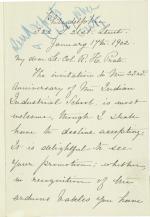 Philadelphia
21st Street.
January 17th 1902.
My dear Lt. Col. R. H. Pratt.
The invitation to the 23rd
Anniversary of the Indian
Industrial School, is most
welcome, though I shall
have to decline accepting.
It is delightful to see
your promotion: whether
in recognition of the
arduous battles you have